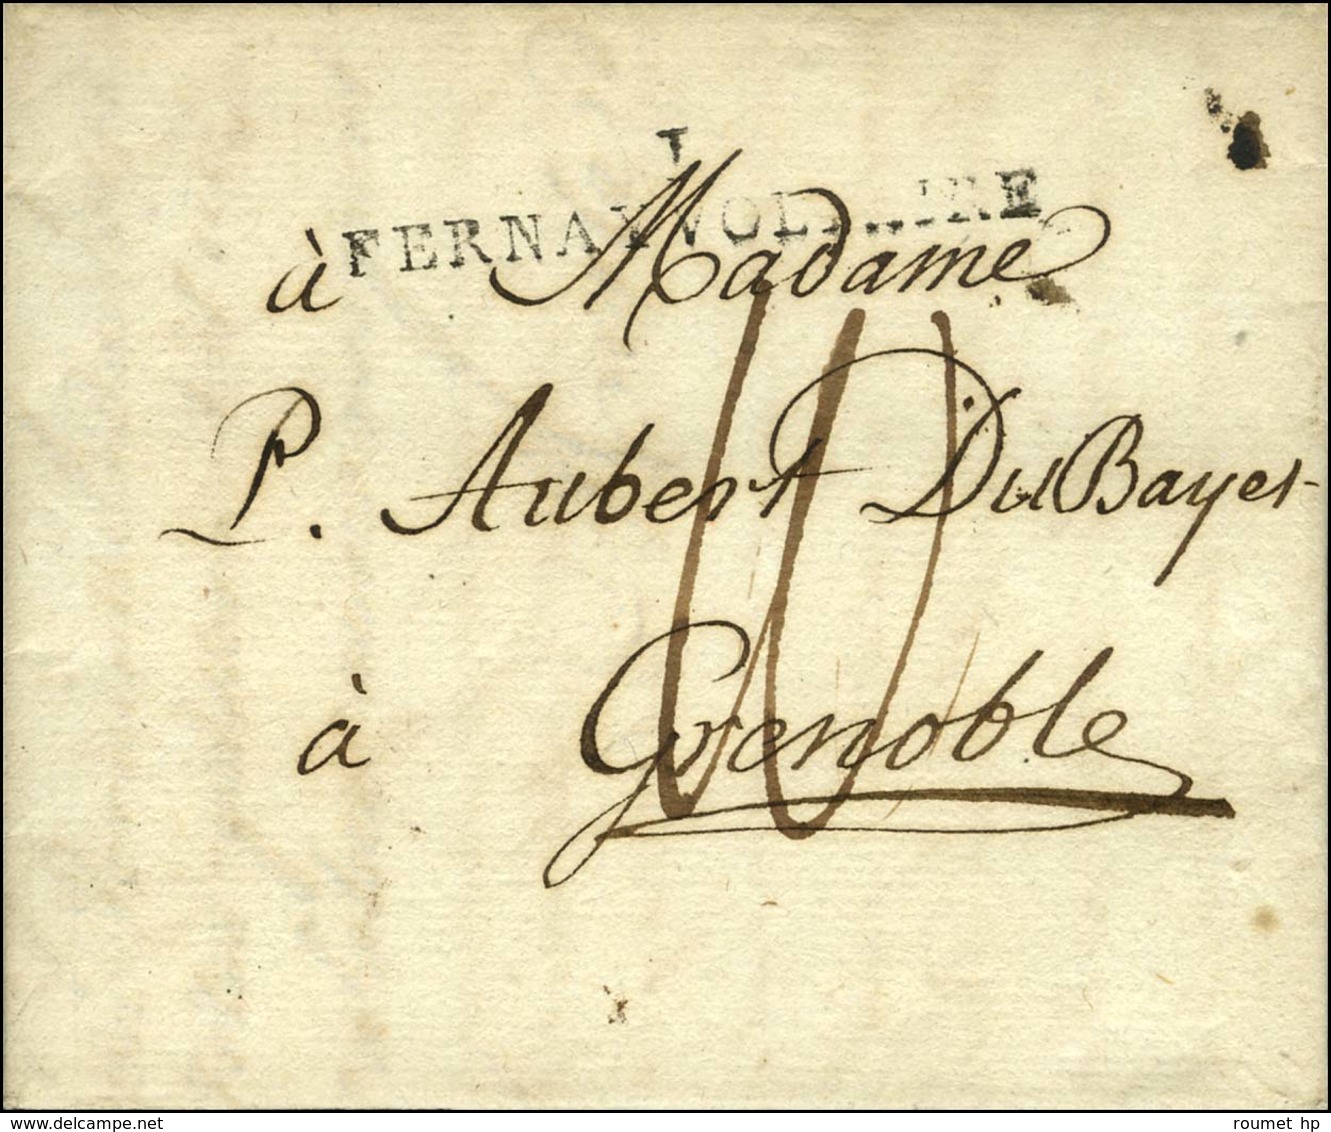 1
FERNAY VOLTAIRE
à Madame
P. Aubert DuBayet
10
à Grenoble
www.delcampe.net
roumet hp